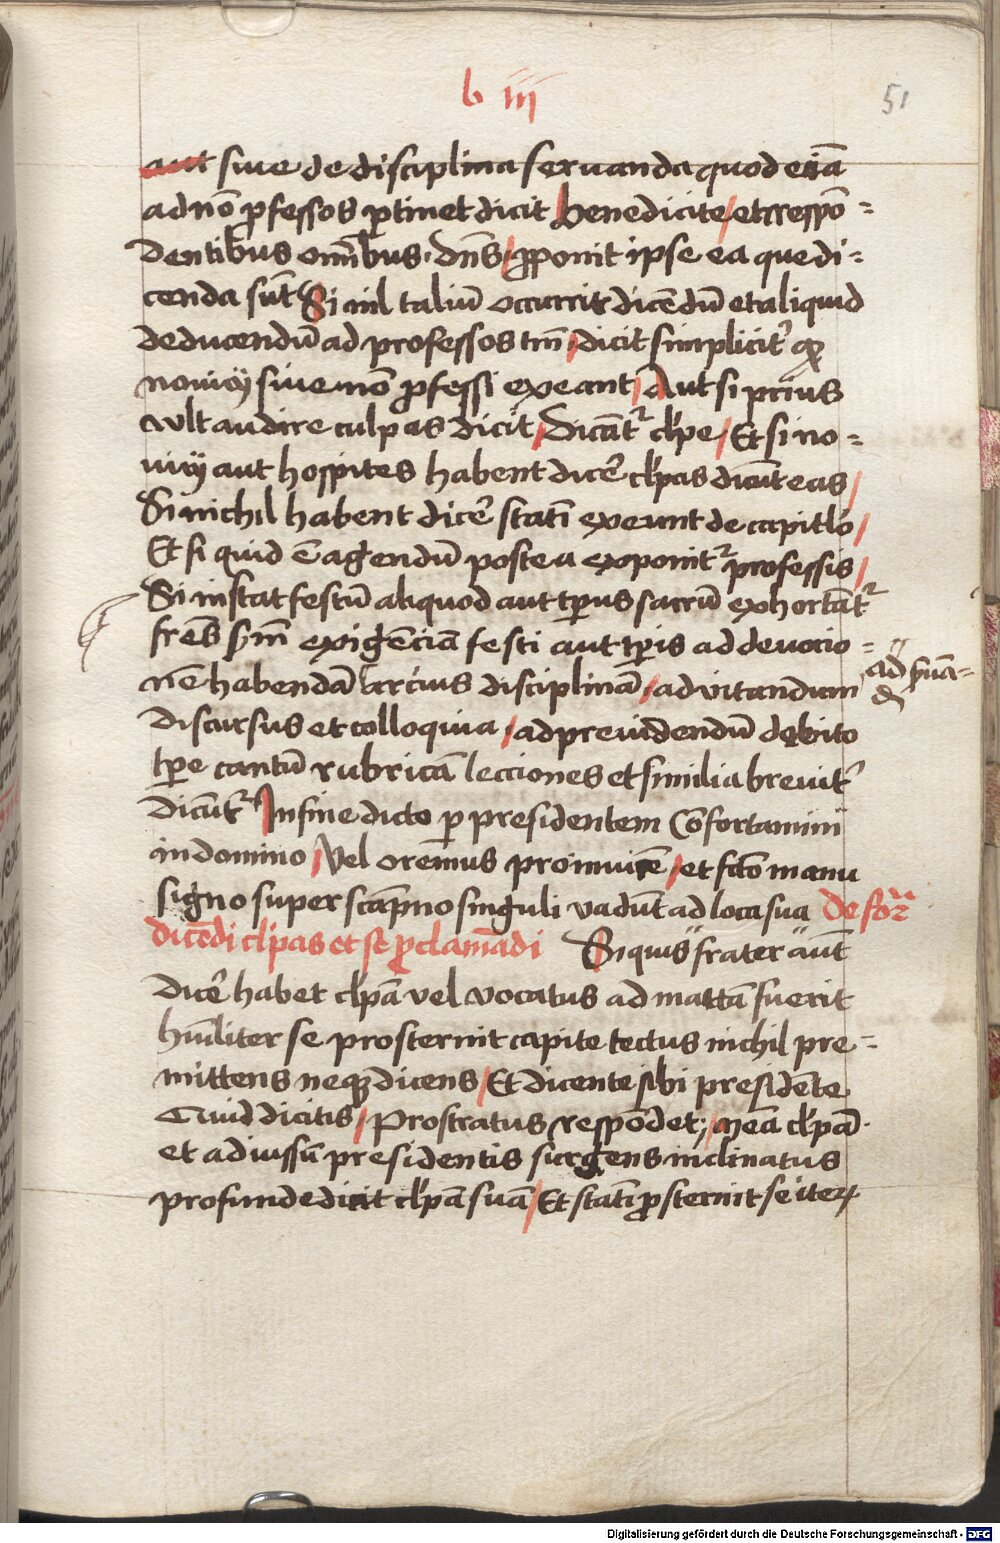 b iii
51
aut siue de disciplina seruanda quod eciā
ad nō ꝓfessos ꝑtinet dicit Benedicite / et respō =
dentibus omībus · dn̄s / ꝓponit ipse ea que di =
cenda sūt Si nil taliū occurrit dicēdū et aliquid
deducendū ad professos tm̄ / dicit simplicit̉ ꝙ
nouicij siue nō ꝓfessi exeant / Aut si prius
vlt audire culpas dicit / Dicāt᷑ cl̓pe / Et si no =
uicij aut hospites habent dicer̄ cl̓pas dicūt eas /
Si nichil habent dicer̄ statī exeunt de capitl̓o /
Et si quid ē agendū postea exponit᷑ professis /
Si instat festū aliquod aut tp̄us sacrū exhortāt᷑
fr̄es s̄m exigēciā festi aut tp̄is ad deuocio =
nē habendā arcius disciplinā / ad vitandum
ad suā =
dū
discursus et colloquia / ad preuidendū debito
tp̄e cantū rubricā lecciones et similia breuit̉
dicūt᷑ In fine dicto ꝑ presidentem Cōfortamini
in domino / Vel oremus proinuicē / et fc̄o manu
signo super scāpno singuli vadūt ad loca sua De for̄a
dicēdi cl̓pas et se ꝓclamādi Si quis frater aūt
dicer̄ habet cl̓pā vel vocatus ad mattā fuerit
hūiliter se prosternit capite tectus nichil pre =
mittens neqꝫ dicens / Et dicente sibi presidēte
Quid dicitis / Prostratus respōdet ; / Mea cl̓pā ·
et ad iussū presidentis surgens inclinatus
profunde dicit cl̓pā suā / Et statī ꝓsternit se iteꝝ
Digitalisierung gefördert durch die Deutsche Forschungsgemeinschaft - DFG